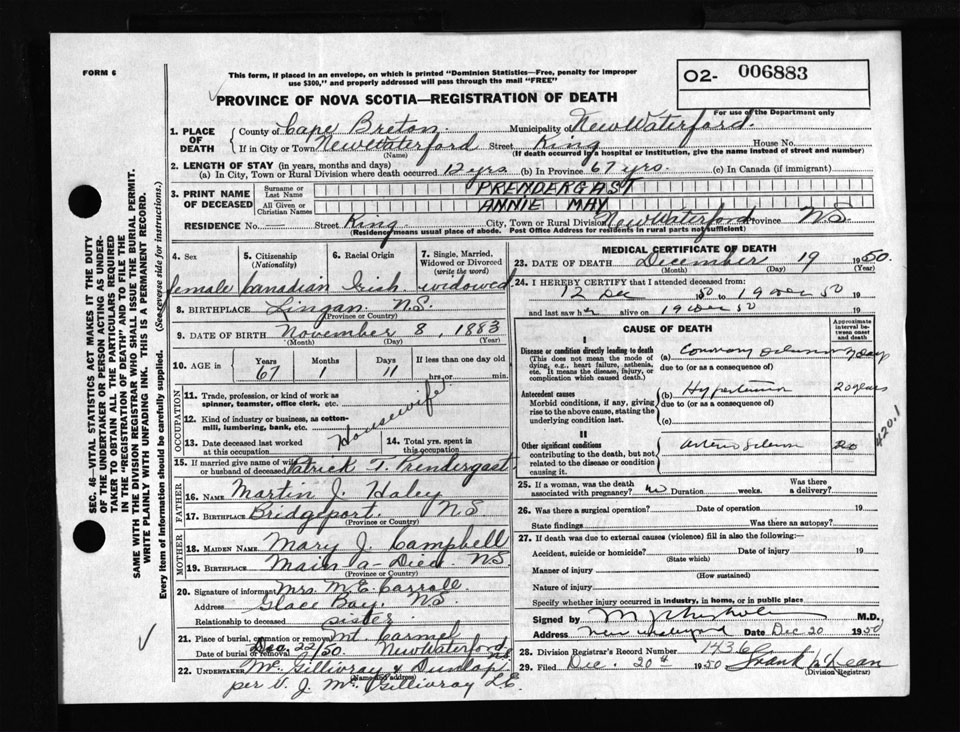 FORM 6
This form, if placed in an envelope, on which is printed "Dominion Statistics—Free, penalty for improper
use $300," and properly addressed will pass through the mail "FREE"
O2- 006883
For use of the Department only
PROVINCE OF NOVA SCOTIA—REGISTRATION OF DEATH
1. PLACE OF DEATH
County of Cape Breton Municipality of New Waterford.
If in City or Town New Waterford Street King House No.
(Name) (If death occurred in a hospital or institution, give the name instead of street and number)
2. LENGTH OF STAY (in years, months and days)
(a) In City, Town or Rural Division where death occurred 12 yrs (b) In Province 67 yrs. (c) In Canada (if immigrant)
3. PRINT NAME OF DECEASED
Surname or Last Name PRENDERGAST
All Given or Christian Names ANNIE MAY
RESIDENCE No. — Street King City, Town or Rural Division New Waterford Province N.S.
(Residence means usual place of abode. Post Office Address for residents in rural parts not sufficient)
4. Sex
female
5. Citizenship (Nationality)
Canadian
6. Racial Origin
Irish
7. Single, Married, Widowed or Divorced (write the word)
widowed
8. BIRTHPLACE Lingan N.S.
(Province or Country)
9. DATE OF BIRTH November 8, 1883
(Month) (Day) (Year)
10. AGE in Years Months Days If less than one day old
67 1 11 hrs. or min.
OCCUPATION
11. Trade, profession, or kind of work as spinner, teamster, office clerk, etc.
Housewife
12. Kind of industry or business, as cotton-mill, lumbering, bank, etc.
13. Date deceased last worked at this occupation
14. Total yrs. spent in this occupation
15. If married give name of wife or husband of deceased Patrick T. Prendergast
FATHER
16. NAME Martin J. Haley
17. BIRTHPLACE Bridgeport. NS
(Province or Country)
MOTHER
18. MAIDEN NAME Mary J. Campbell
19. BIRTHPLACE Main-a-Dieu. NS
(Province or Country)
20. Signature of informant Mrs. M.E. Carroll.
Address Glace Bay, NS.
Relationship to deceased sister
21. Place of burial, cremation or removal Mt. Carmel
Date of burial or removal Dec 22/50. New Waterford NS
22. UNDERTAKER McGillivray & Dunlap
(Name and address)
per V. J. McGillivray L.E.
MEDICAL CERTIFICATE OF DEATH
23. DATE OF DEATH December 19 1950.
(Month) (Day) (Year)
24. I HEREBY CERTIFY that I attended deceased from:
12 Dec 1950 to 19 Dec 50 19
and last saw her alive on 19 Dec 50 19
CAUSE OF DEATH
Approximate interval between onset and death
I
Disease or condition directly leading to death
(This does not mean the mode of dying, e.g., heart failure, asthenia, etc. It means the disease, injury, or complication which caused death.)
(a) Coronary Occlusion 7 days
due to (or as a consequence of)
Antecedent causes
Morbid conditions, if any, giving rise to the above cause, stating the underlying condition last.
(b) Hypertension 20 years
due to (or as a consequence of)
(c)
II
Other significant conditions
contributing to the death, but not related to the disease or condition causing it.
Arterio Sclerosis 20
420.1
25. If a woman, was the death associated with pregnancy? no Duration weeks. Was there a delivery?
26. Was there a surgical operation? Date of operation 19
State findings Was there an autopsy?
27. If death was due to external causes (violence) fill in also the following:—
Accident, suicide or homicide? Date of injury 19
(State which)
Manner of injury
(How sustained)
Nature of injury
Specify whether injury occurred in industry, in home, or in public place
Signed by M.D.
Address New Waterford Date Dec 20 1950
28. Division Registrar's Record Number 1436
29. Filed Dec. 20th 1950 Frank McLean
(Division Registrar)
SEC. 46—VITAL STATISTICS ACT MAKES IT THE DUTY
OF THE UNDERTAKER OR PERSON ACTING AS UNDERTAKER TO OBTAIN ALL THE PARTICULARS REQUIRED
IN THE "REGISTRATION OF DEATH" AND TO FILE THE
SAME WITH THE DIVISION REGISTRAR WHO SHALL ISSUE THE BURIAL PERMIT.
WRITE PLAINLY WITH UNFADING INK. THIS IS A PERMANENT RECORD.
Every item of information should be carefully supplied. (See reverse side for instructions.)